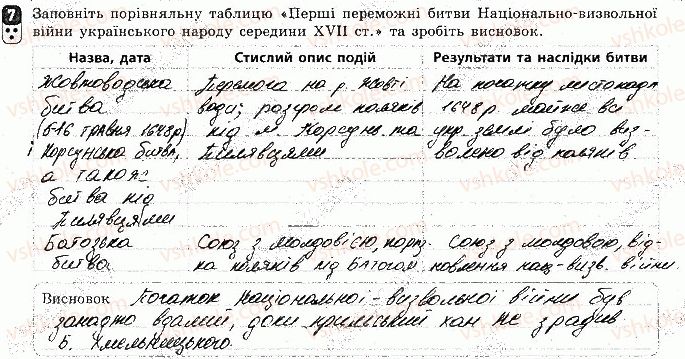 7 Заповніть порівняльну таблицю «Перші переможні битви Національно-визвольної
війни українського народу середини XVII ст.» та зробіть висновок.
Назва, дата Стислий опис подій Результати та наслідки битви
Жовтоводська Перемога на р. Жовті На початку листопада
битва води; розгром поляків 1648 р. майже всі
(5-16 травня 1648р) під м. Корсунь та укр. землі було виз-
і Корсунська битва, Пилявцями волено від поляків.
а також
битва під
Пилявцями
Батозька Союз з молдовією, Союз з молдовою, від-
битва ка поляків під Батогом новлення нац-визв. війни.
Висновок Початок Національної-визвольної війни був
занадто вдалий, доки кримський хан не зрадив
Б. Хмельницького.
vshkole.com